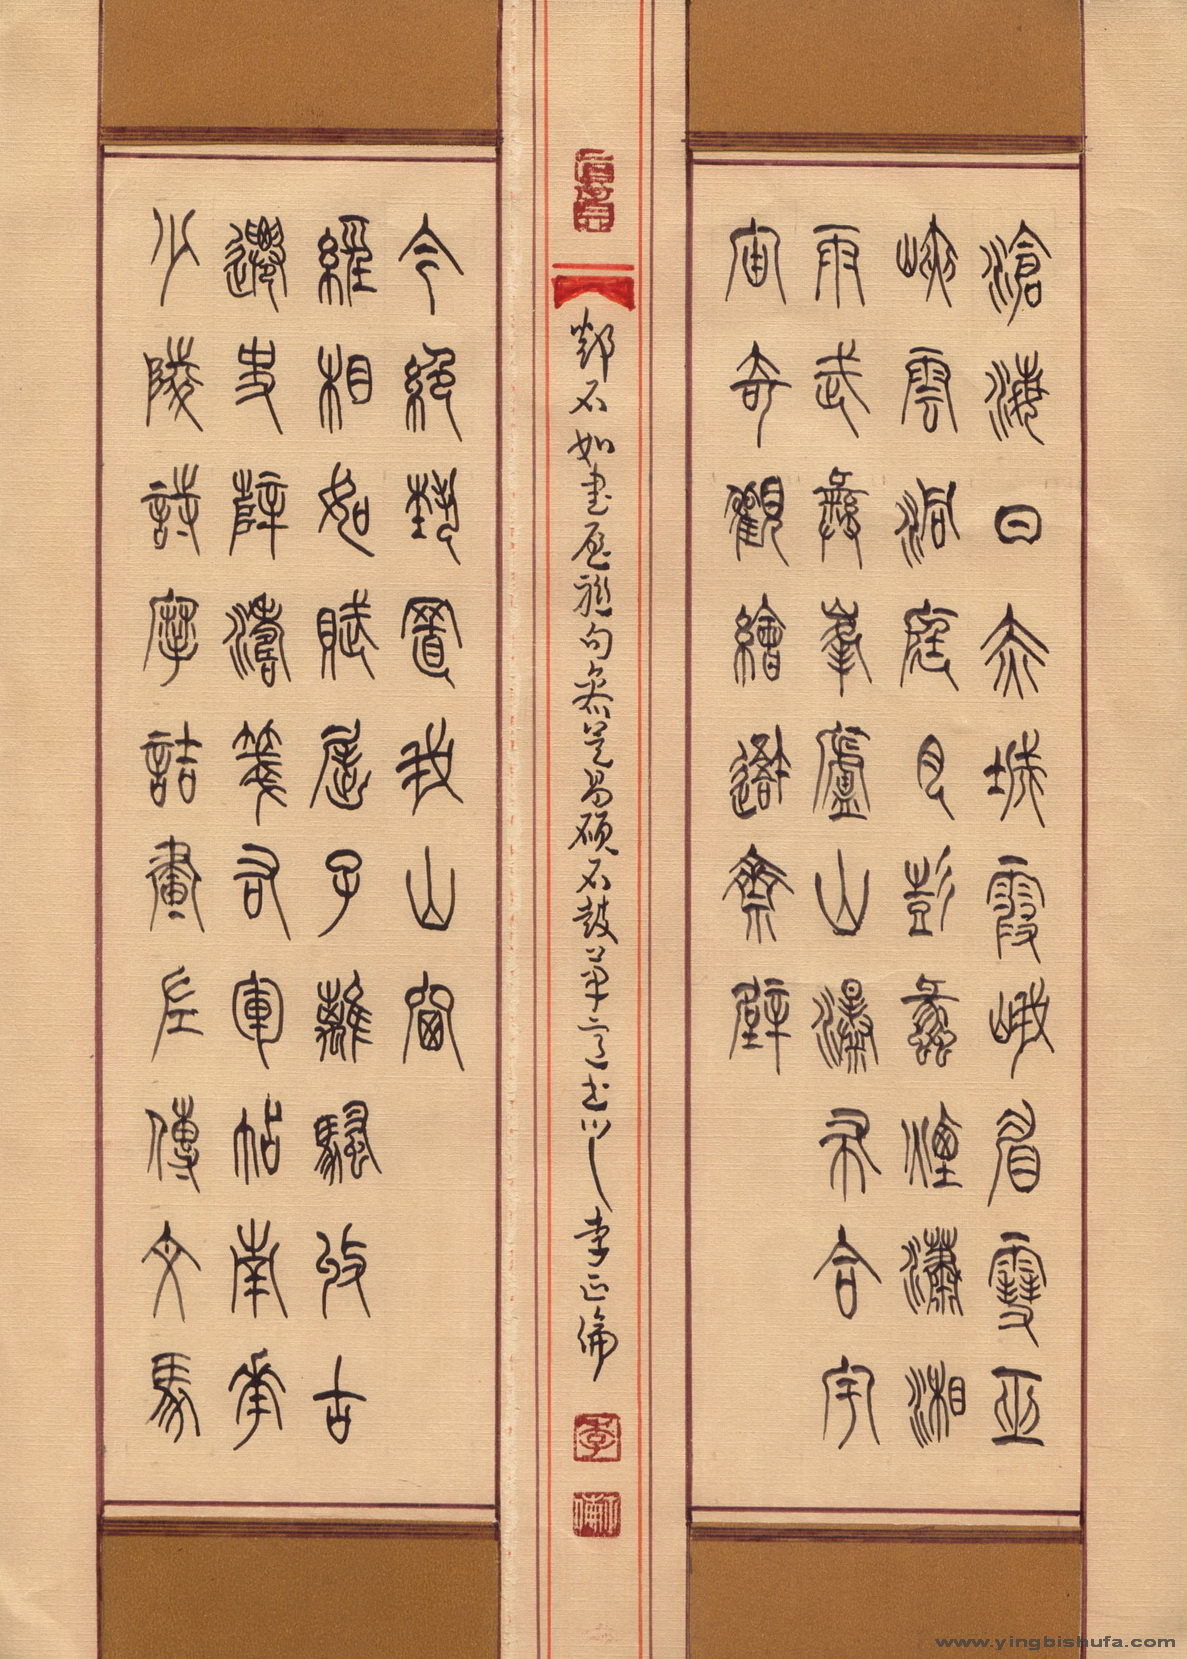 滄海日赤城霞峨眉雪巫
峽雲洞庭月彭蠡煙瀟湘
雨武彝峯廬山瀑布合宇
宙奇觀繪吾齋壁
少陵詩摩詰畫左傳文馬
遷史薛濤箋右軍帖南華
經相如賦屈子離騷收古
今絕藝置我山窗
鄧石如書屋聯句參吳昌碩石鼓筆意書 李正倫
www.yingbishufa.com